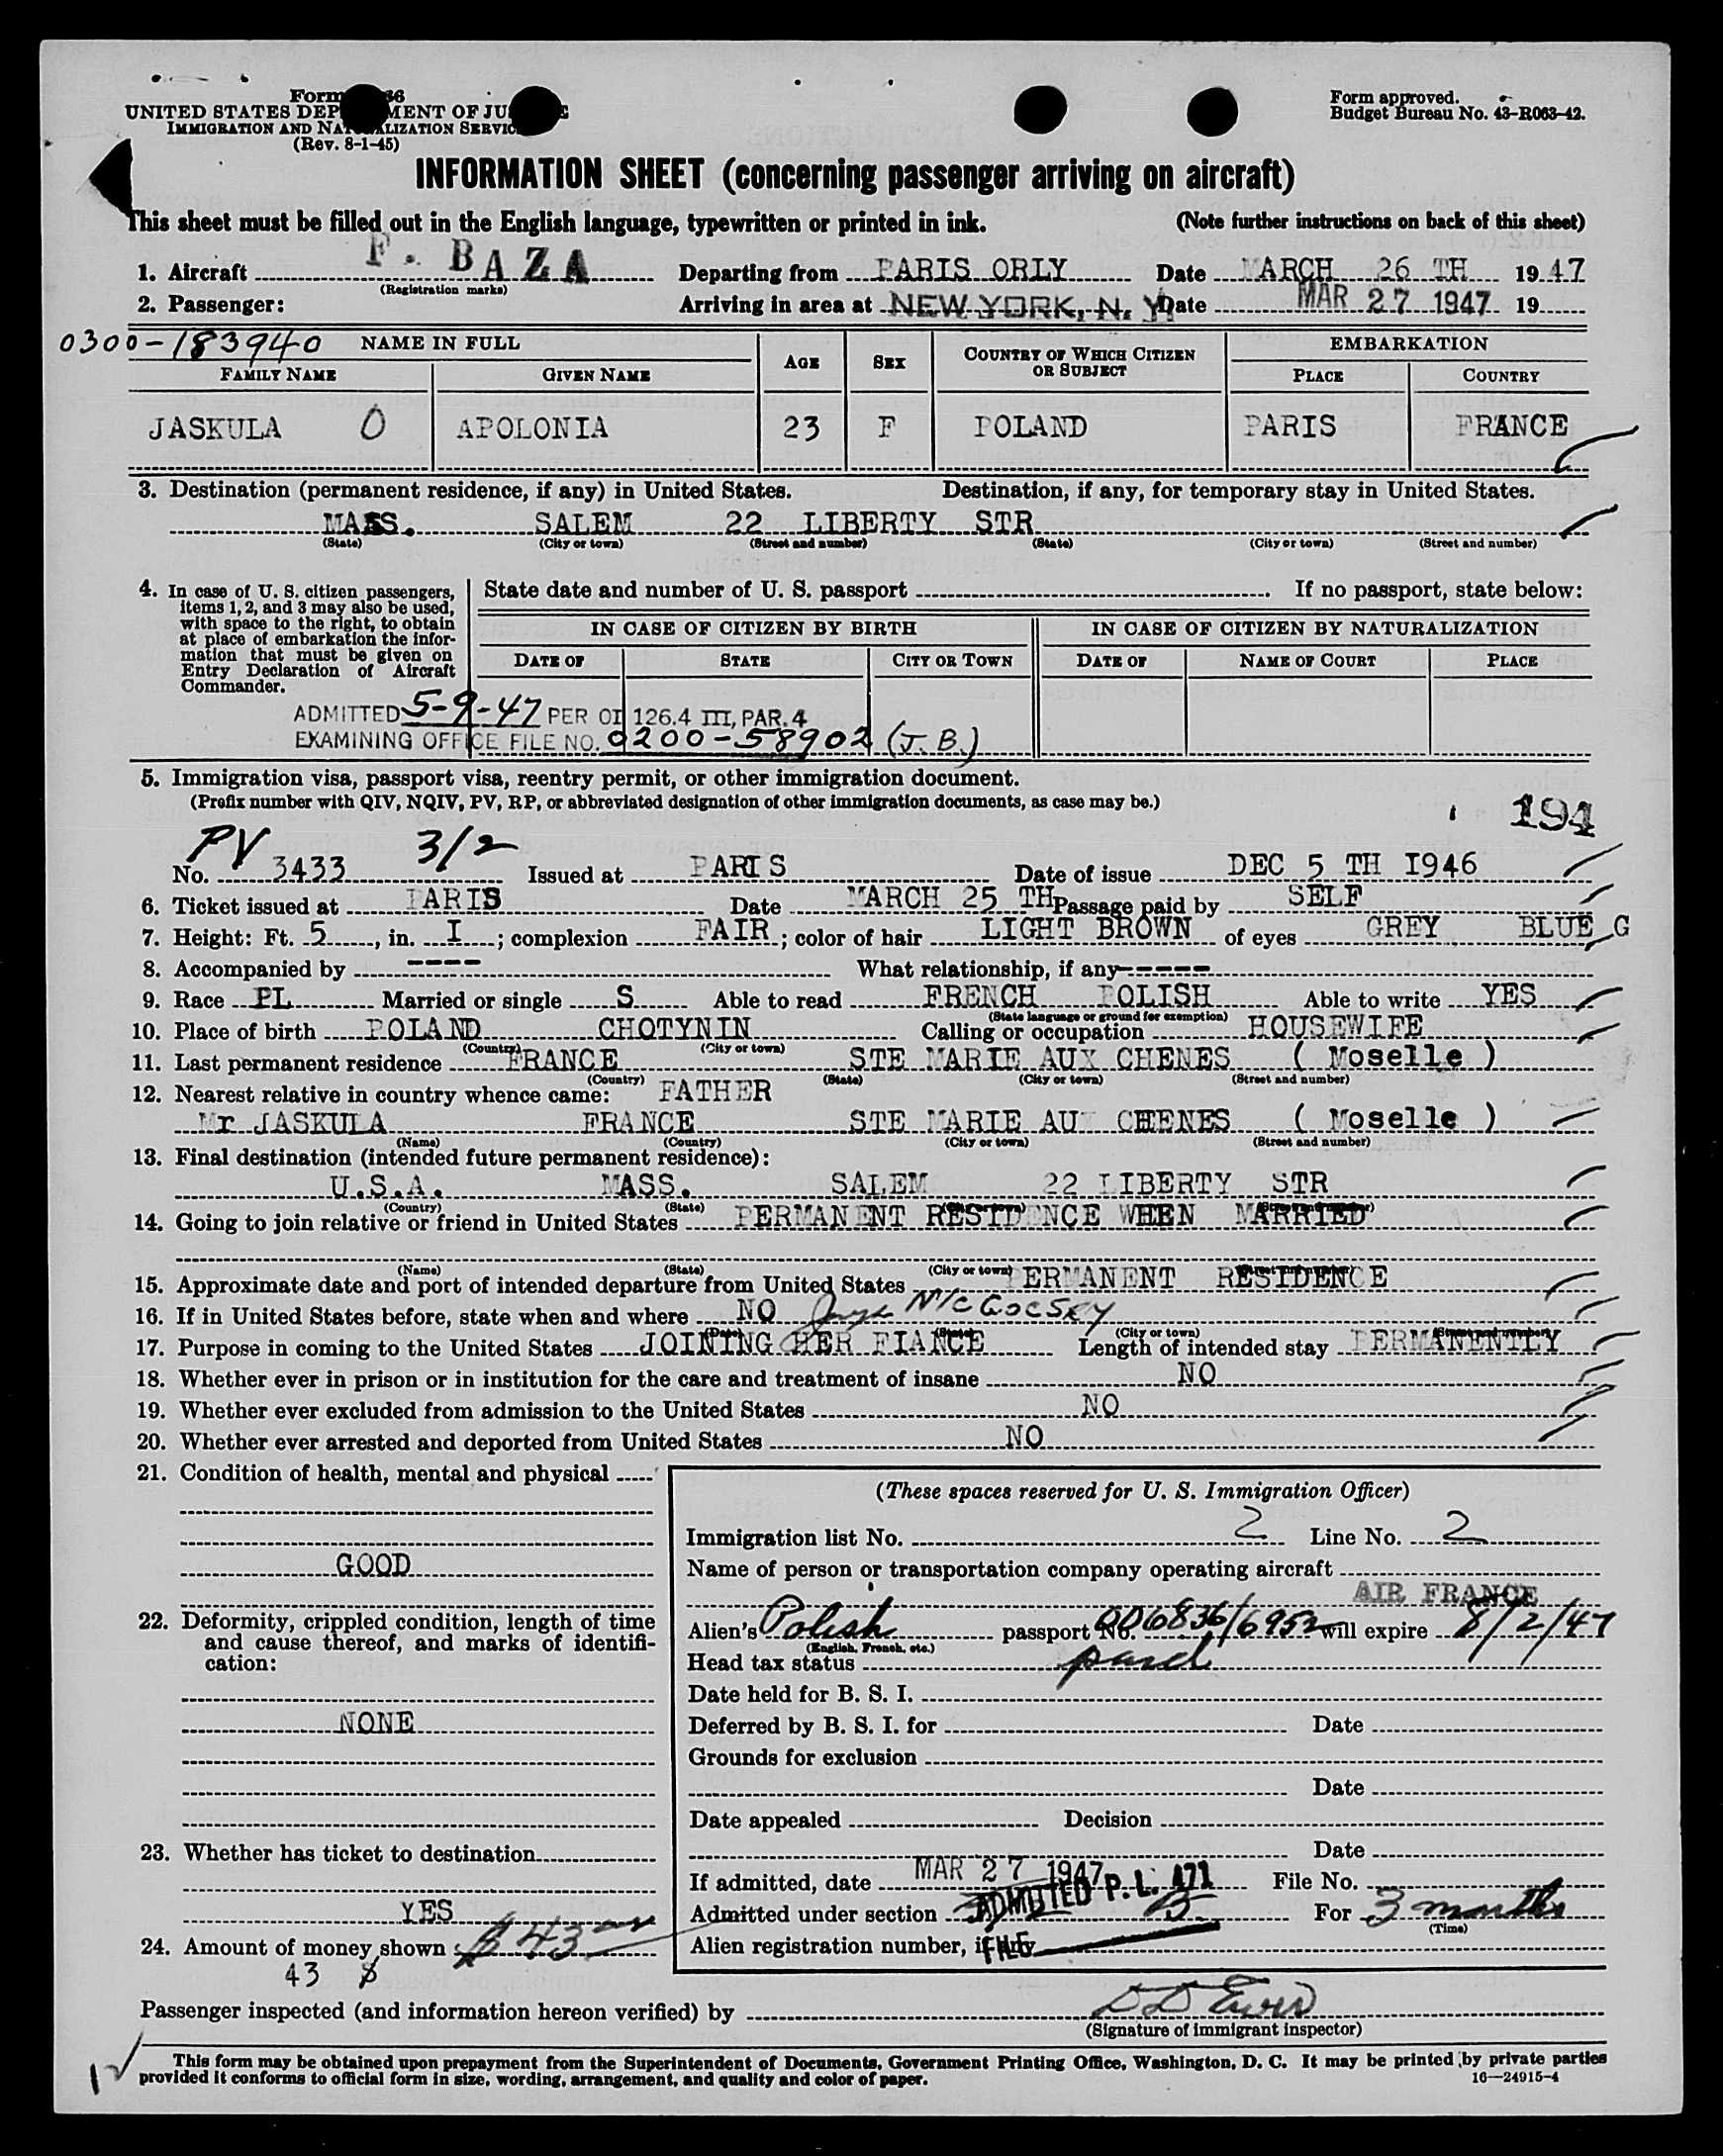 Form 66
UNITED STATES DEP MENT OF JU E
IMMIGRATION AND NATURALIZATION SERVIC
(Rev. 8-1-45)
Form approved.
Budget Bureau No. 43-R063-42.
INFORMATION SHEET (concerning passenger arriving on aircraft)
This sheet must be filled out in the English language, typewritten or printed in ink. (Note further instructions on back of this sheet)
1. Aircraft F. BAZA Departing from PARIS ORLY Date MARCH 26 TH 19 47
(Registration marks)
2. Passenger: Arriving in area at NEW YORK, N. Y. Date MAR 27 1947 19
0300-183940 NAME IN FULL AGE SEX COUNTRY OF WHICH CITIZEN OR SUBJECT EMBARKATION
FAMILY NAME GIVEN NAME PLACE COUNTRY
JASKULA O APOLONIA 23 F POLAND PARIS FRANCE
3. Destination (permanent residence, if any) in United States. Destination, if any, for temporary stay in United States.
MASS. SALEM 22 LIBERTY STR
(State) (City or town) (Street and number) (State) (City or town) (Street and number)
4. In case of U. S. citizen passengers, items 1, 2, and 3 may also be used, with space to the right, to obtain at place of embarkation the information that must be given on Entry Declaration of Aircraft Commander.
State date and number of U. S. passport . If no passport, state below:
IN CASE OF CITIZEN BY BIRTH IN CASE OF CITIZEN BY NATURALIZATION
DATE OF STATE CITY OR TOWN DATE OF NAME OF COURT PLACE
ADMITTED 5-9-47 PER OI 126.4 III, PAR. 4
EXAMINING OFFICE FILE NO. 0200-58902 (J. B.)
5. Immigration visa, passport visa, reentry permit, or other immigration document.
(Prefix number with QIV, NQIV, PV, RP, or abbreviated designation of other immigration documents, as case may be.)
194
PV 3/2
No. 3433 Issued at PARIS Date of issue DEC 5 TH 1946
6. Ticket issued at PARIS Date MARCH 25 TH Passage paid by SELF
7. Height: Ft. 5, in. I; complexion FAIR; color of hair LIGHT BROWN of eyes GREY BLUE G
8. Accompanied by ---- What relationship, if any -----
9. Race PL Married or single S Able to read FRENCH POLISH Able to write YES
(State language or ground for exemption)
10. Place of birth POLAND CHOTYNIN Calling or occupation HOUSEWIFE
(Country) (City or town)
11. Last permanent residence FRANCE STE MARIE AUX CHENES ( Moselle )
(Country) (State) (City or town) (Street and number)
12. Nearest relative in country whence came: FATHER
Mr JASKULA FRANCE STE MARIE AUX CHENES ( Moselle )
(Name) (Country) (City or town) (Street and number)
13. Final destination (intended future permanent residence):
U.S.A. MASS. SALEM 22 LIBERTY STR
(Country) (State) (City or town) (Street and number)
14. Going to join relative or friend in United States PERMANENT RESIDENCE WHEN MARRIED
(Name) (State) (City or town) (Street and number)
15. Approximate date and port of intended departure from United States PERMANENT RESIDENCE
16. If in United States before, state when and where NO
(Date) (State) (City or town) (Street and number)
17. Purpose in coming to the United States JOINING HER FIANCE Length of intended stay PERMANENTLY
18. Whether ever in prison or in institution for the care and treatment of insane NO
19. Whether ever excluded from admission to the United States NO
20. Whether ever arrested and deported from United States NO
21. Condition of health, mental and physical
GOOD
22. Deformity, crippled condition, length of time and cause thereof, and marks of identification:
NONE
23. Whether has ticket to destination
YES
24. Amount of money shown $43
43 $
(These spaces reserved for U. S. Immigration Officer)
Immigration list No. 2 Line No. 2
Name of person or transportation company operating aircraft
AIR FRANCE
Alien's Polish passport No. 006836/6952 will expire 8/2/47
(English, French, etc.)
Head tax status paid
Date held for B. S. I.
Deferred by B. S. I. for Date
Grounds for exclusion
Date
Date appealed Decision
Date
If admitted, date MAR 27 1947 File No.
Admitted under section ADMITTED P. L. 471 For 3 months
(Time)
Alien registration number, if any FILE
Passenger inspected (and information hereon verified) by
(Signature of immigrant inspector)
This form may be obtained upon prepayment from the Superintendent of Documents, Government Printing Office, Washington, D. C. It may be printed by private parties
provided it conforms to official form in size, wording, arrangement, and quality and color of paper. 16—24915-4